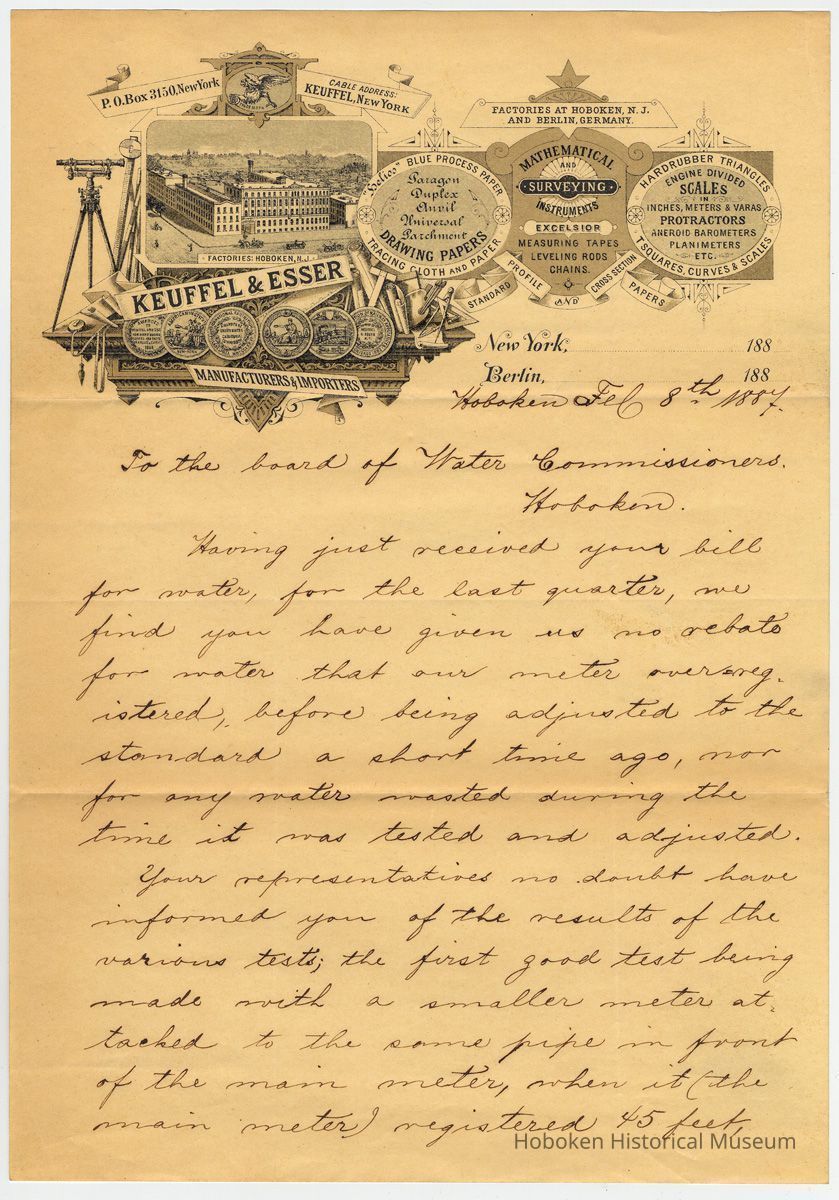 P.O. Box 3150, New York
TRADE MARK
CABLE ADDRESS:
KEUFFEL, NEW YORK
FACTORIES: HOBOKEN, N.J.
KEUFFEL & ESSER
MANUFACTURERS & IMPORTERS
"Helios" BLUE PROCESS PAPER
Paragon
Duplex
Anvil
Universal
Parchment
DRAWING PAPERS
TRACING CLOTH AND PAPER
FACTORIES AT HOBOKEN, N. J.
AND BERLIN, GERMANY.
MATHEMATICAL
AND
SURVEYING
INSTRUMENTS
EXCELSIOR
MEASURING TAPES
LEVELING RODS
CHAINS.
STANDARD PROFILE AND CROSS SECTION PAPERS
HARDRUBBER TRIANGLES
ENGINE DIVIDED
SCALES
IN
INCHES, METERS & VARAS
PROTRACTORS
ANEROID BAROMETERS
PLANIMETERS
ETC.
T SQUARES, CURVES & SCALES
New York, 188
Berlin, 188
Hoboken Feb 8th 1887.
To the board of Water Commissioners.
Hoboken.
Having just received your bill
for water, for the last quarter, we
find you have given us no rebate
for water that our meter over-reg-
istered, before being adjusted to the
standard a short time ago, nor
for any water wasted during the
time it was tested and adjusted.
Your representatives no doubt have
informed you of the results of the
various tests; the first good test being
made with a smaller meter at-
tacked to the same pipe in front
of the main meter, when it (the
main meter) registered 45 feet,
Hoboken Historical Museum